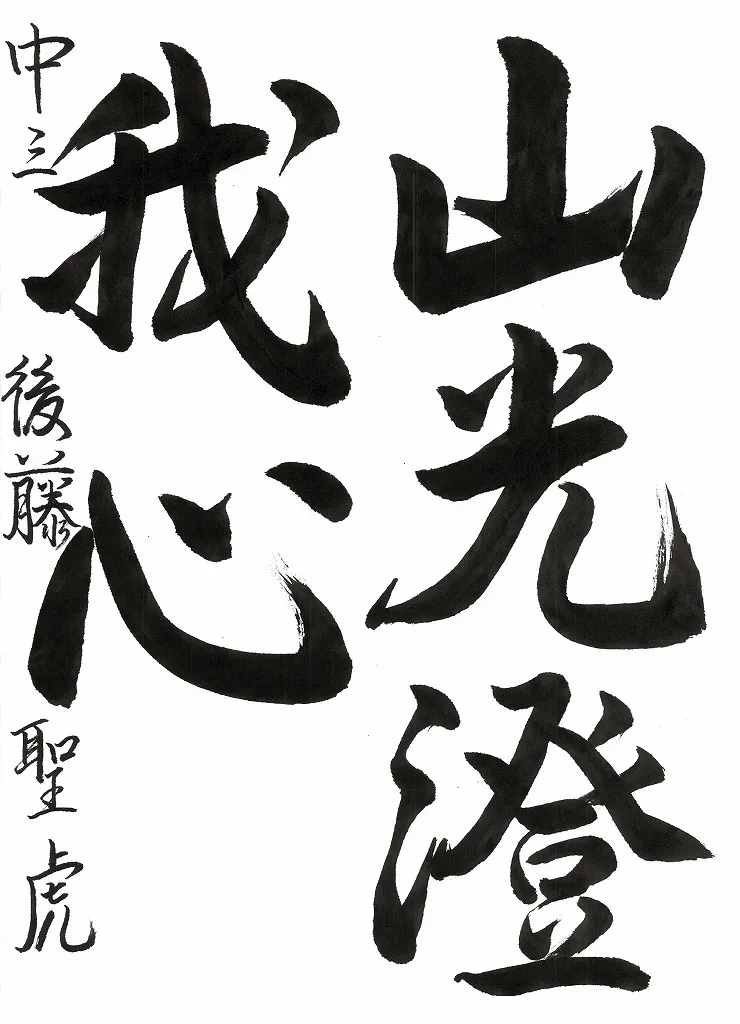 山光澄
我心
中三 後藤 聖虎